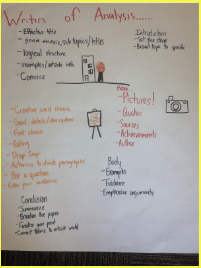 Writers of Analysis......
- Effective title
- good generic sub topics/titles
- logical structure
- examples/outside info
- Concise
Introduction
- Set the stage
- Broad topic to specific
- Pictures!
- Quotes
- Sources
- Achievements
- Author
- Creative word choice
- Good details/descriptions
- Font choice
- Editing
- Drop Caps
- Asterisks to divide paragraphs
- Ask a question
- Know your audience
Body
- Examples
- Evidence
- Conclusion
- Summarize
- the paper
- Finalize your point
- Connect to whole world